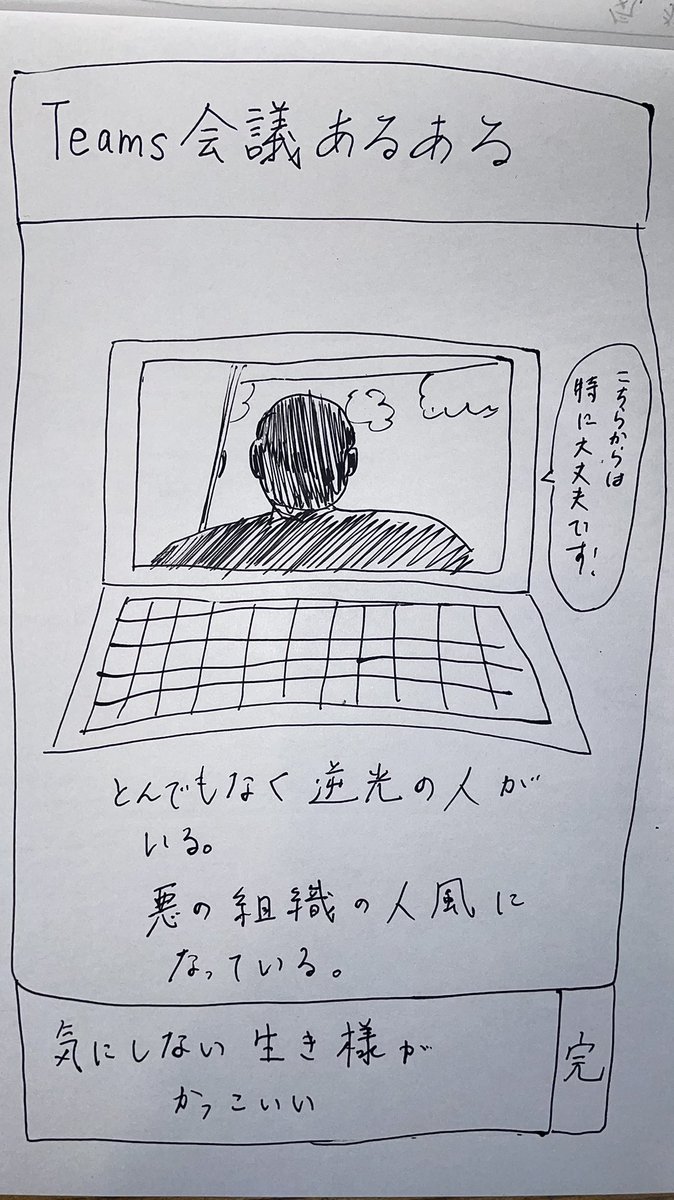 Teams会議あるある
こちらからは
特に大丈夫です!
とんでもなく逆光の人が
いる。
悪の組織の人風に
なっている。
気にしない生き様が
かっこいい
完